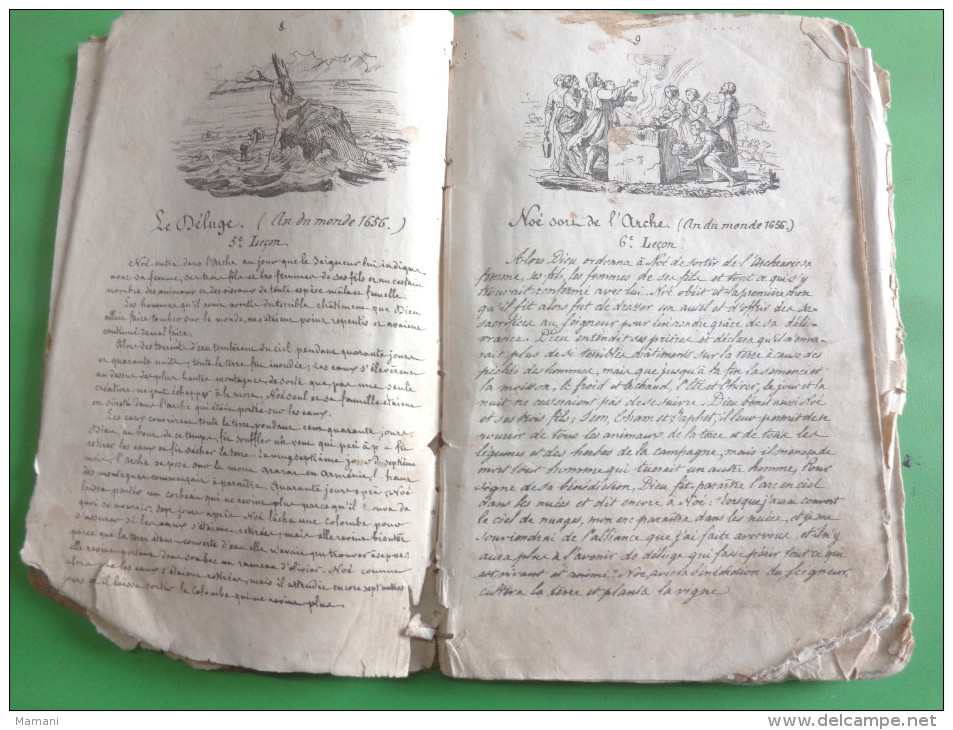 8
Le Déluge. (An du monde 1656.)
5e Leçon.
Noé entra dans l'Arche au jour que le Seigneur lui indiqua
avec sa femme, ses trois fils et les femmes de ses fils et un certain
nombre des animaux et des oiseaux de toute espèce mâle et femelle.
Les hommes qu'il avait avertis du terrible châtiment que Dieu
allait faire tomber sur le monde, ne s'étaient point repentis et avaient
continué de mal faire.
Alors des torrents d'eau tombèrent du ciel pendant quarante jours
et quarante nuits; toute la terre fut inondée, les eaux s'élevèrent
au dessus des plus hautes montagnes, de sorte que pas une seule
créature ne put échapper à la mort. Noé seul et sa famille étaient
en sûreté dans l'arche qui était portée sur les eaux.
Les eaux couvrirent toute la terre pendant cent quarante jours.
Dieu, au bout de ce temps, fit souffler un vent qui peu à p fit
retirer les eaux et fit sécher la terre. Le vingt septième jour du septième
mois l'arche se reposa sur le mont Ararat en Arménie.
des montagnes commençait à paraître. Quarante jours après, Noé
laissa partir un corbeau qui ne revint plus parce qu'il trouva de
quoi se nourrir. Sept jours après Noé lâcha une colombe pour
s'assurer si les eaux s'étaient retirées, mais elle revint bientôt
parce que la terre étant couverte d'eau elle n'avait pu trouver à se poser
elle revint portant dans son bec un rameau d'olivier. Noé connut
alors que les eaux s'étaient retirées, mais il attendit encore sept autres
jours et il laissa sortir la colombe qui ne revint plus
9
Noé sort de l'Arche. (An du monde 1656.)
6e Leçon.
Alors Dieu ordonna à Noé de sortir de l'Arche avec sa
femme, ses fils, les femmes de ses fils et tout ce qui s'y
trouvait enfermé avec lui. Noé obéit et la première action
qu'il fit alors fut de dresser un autel et d'offrir des
sacrifices au Seigneur pour lui rendre grâce de sa déli-
vrance. Dieu entendit ses prières et déclara qu'il n'enver-
rait plus de si terribles châtiments sur la terre à cause des
péchés des hommes, mais que jusqu'à la fin la semence et
la moisson, le froid et le chaud, l'Eté et l'hiver, le jour et la
nuit ne cesseraient pas de se suivre. Dieu bénit aussi Noé
et ses trois fils, Sem, Cham et Japhet; il leur permit de se
nourrir de tous les animaux de la terre et de tous les
légumes et des herbes de la campagne, mais il menaça de
mort tout homme qui tuerait un autre homme. Pour
signe de sa bénédiction, Dieu fit paraître l'arc en ciel
dans les nuées et dit encore à Noé: Lorsque j'aurai couvert
le ciel de nuages, mon arc paraîtra dans les nuées, et je me
souviendrai de l'alliance que j'ai faite avec vous, et il n'y
aura plus à l'avenir de déluge qui fasse périr tout ce qui
est vivant et animé. Noé, après la bénédiction du Seigneur,
cultiva la terre et planta la vigne
Mamani
www.delcampe.net